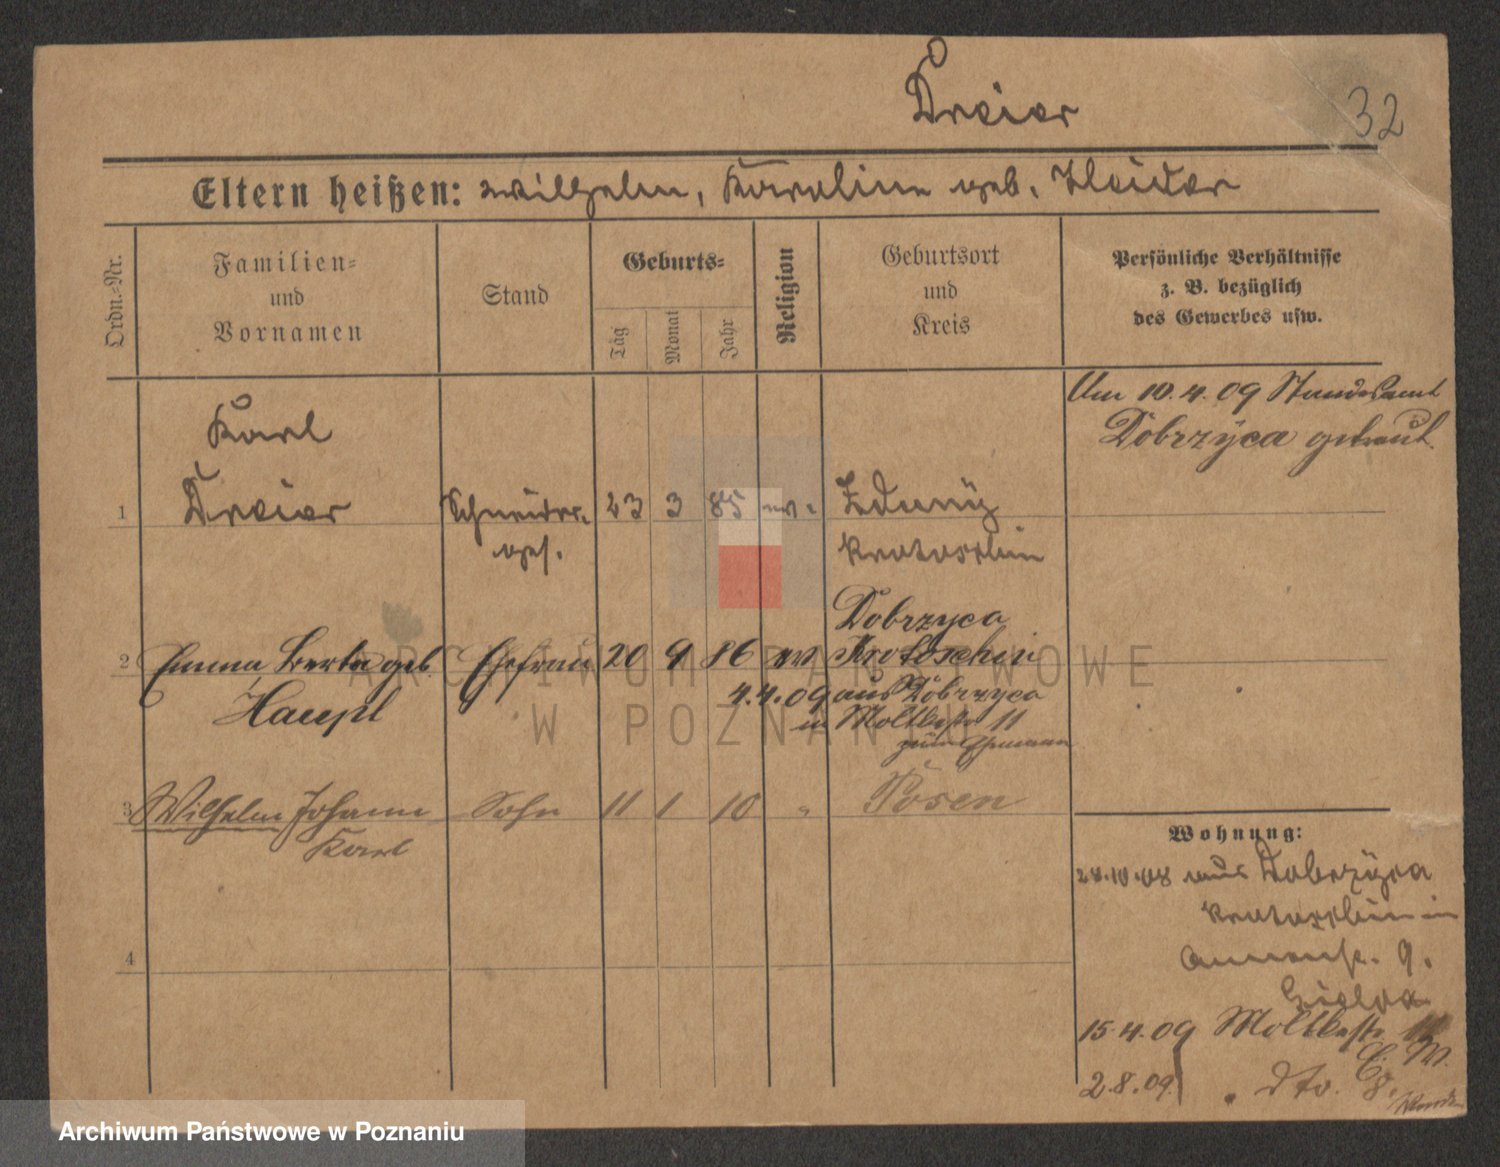 Dreier
32
Eltern heißen: Wilhelm, Karoline geb. Heider
Ordn.-Nr.
Familien-
und
Vornamen
Stand
Geburts-
Tag
Monat
Jahr
Religion
Geburtsort
und
Kreis
Persönliche Verhältnisse
z. B. bezüglich
des Gewerbes usw.
Am 10.4.09 Standesamt
Dobrzyca getraut.
Karl
1 Dreier Schneider- 23 3 85 ev. Zduny
ges. Krotoschin
Dobrzyca
2 Emma, Berta geb. Ehefrau 20 9 86 ev Krotoschin
Haupt 4.4.09 aus Dobrzyca
in Moltkestr 11
zum Ehemann
3 Wilhelm Johann Sohn 11 1 10 " Posen
Karl
4
Wohnung:
28.10.08 aus Dobrzyca
Krotoschin in
Annenstr. 9.
15.4.09 Moltkestr. 11
2.8.09 " dto. 8.
ARCHIWUM PAŃSTWOWE
W POZNANIU
Archiwum Państwowe w Poznaniu